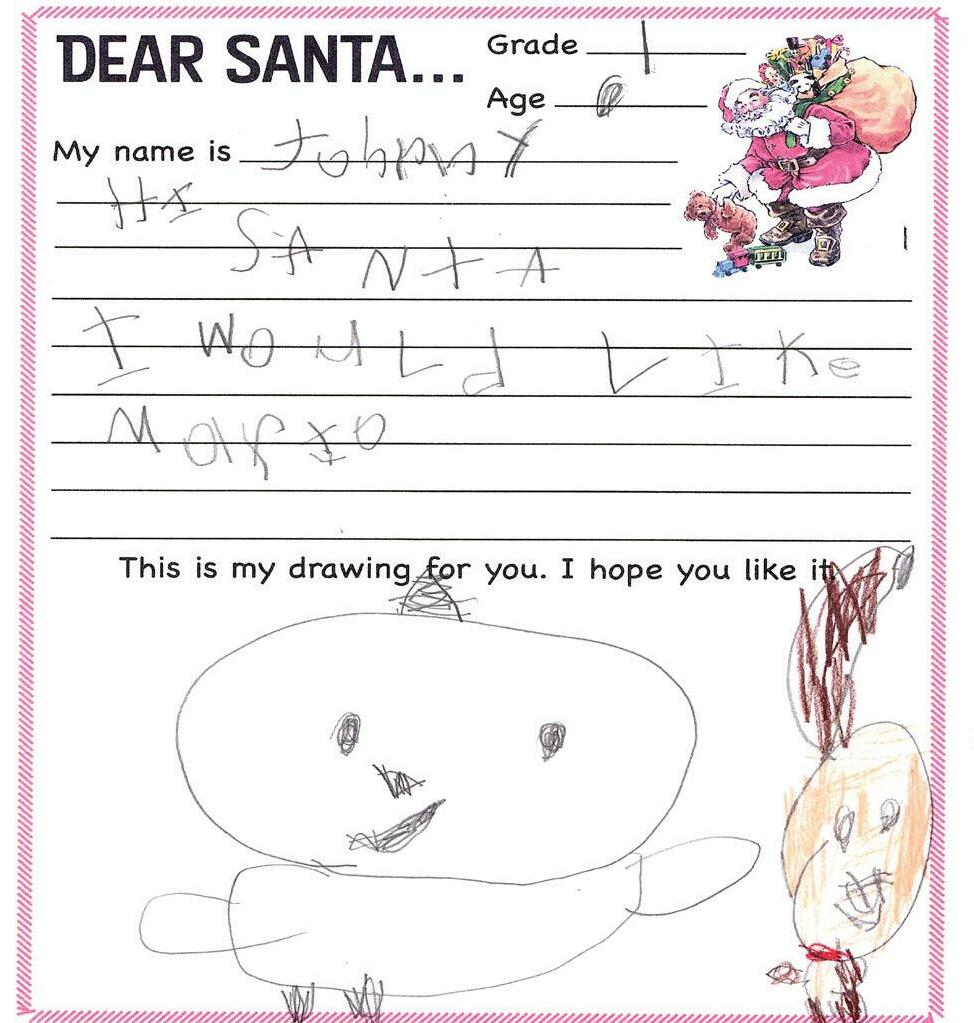 DEAR SANTA...
Grade 1
Age
My name is Johnny
HI
SANTA
I WOULd LIKe
MARIO
This is my drawing for you. I hope you like it.